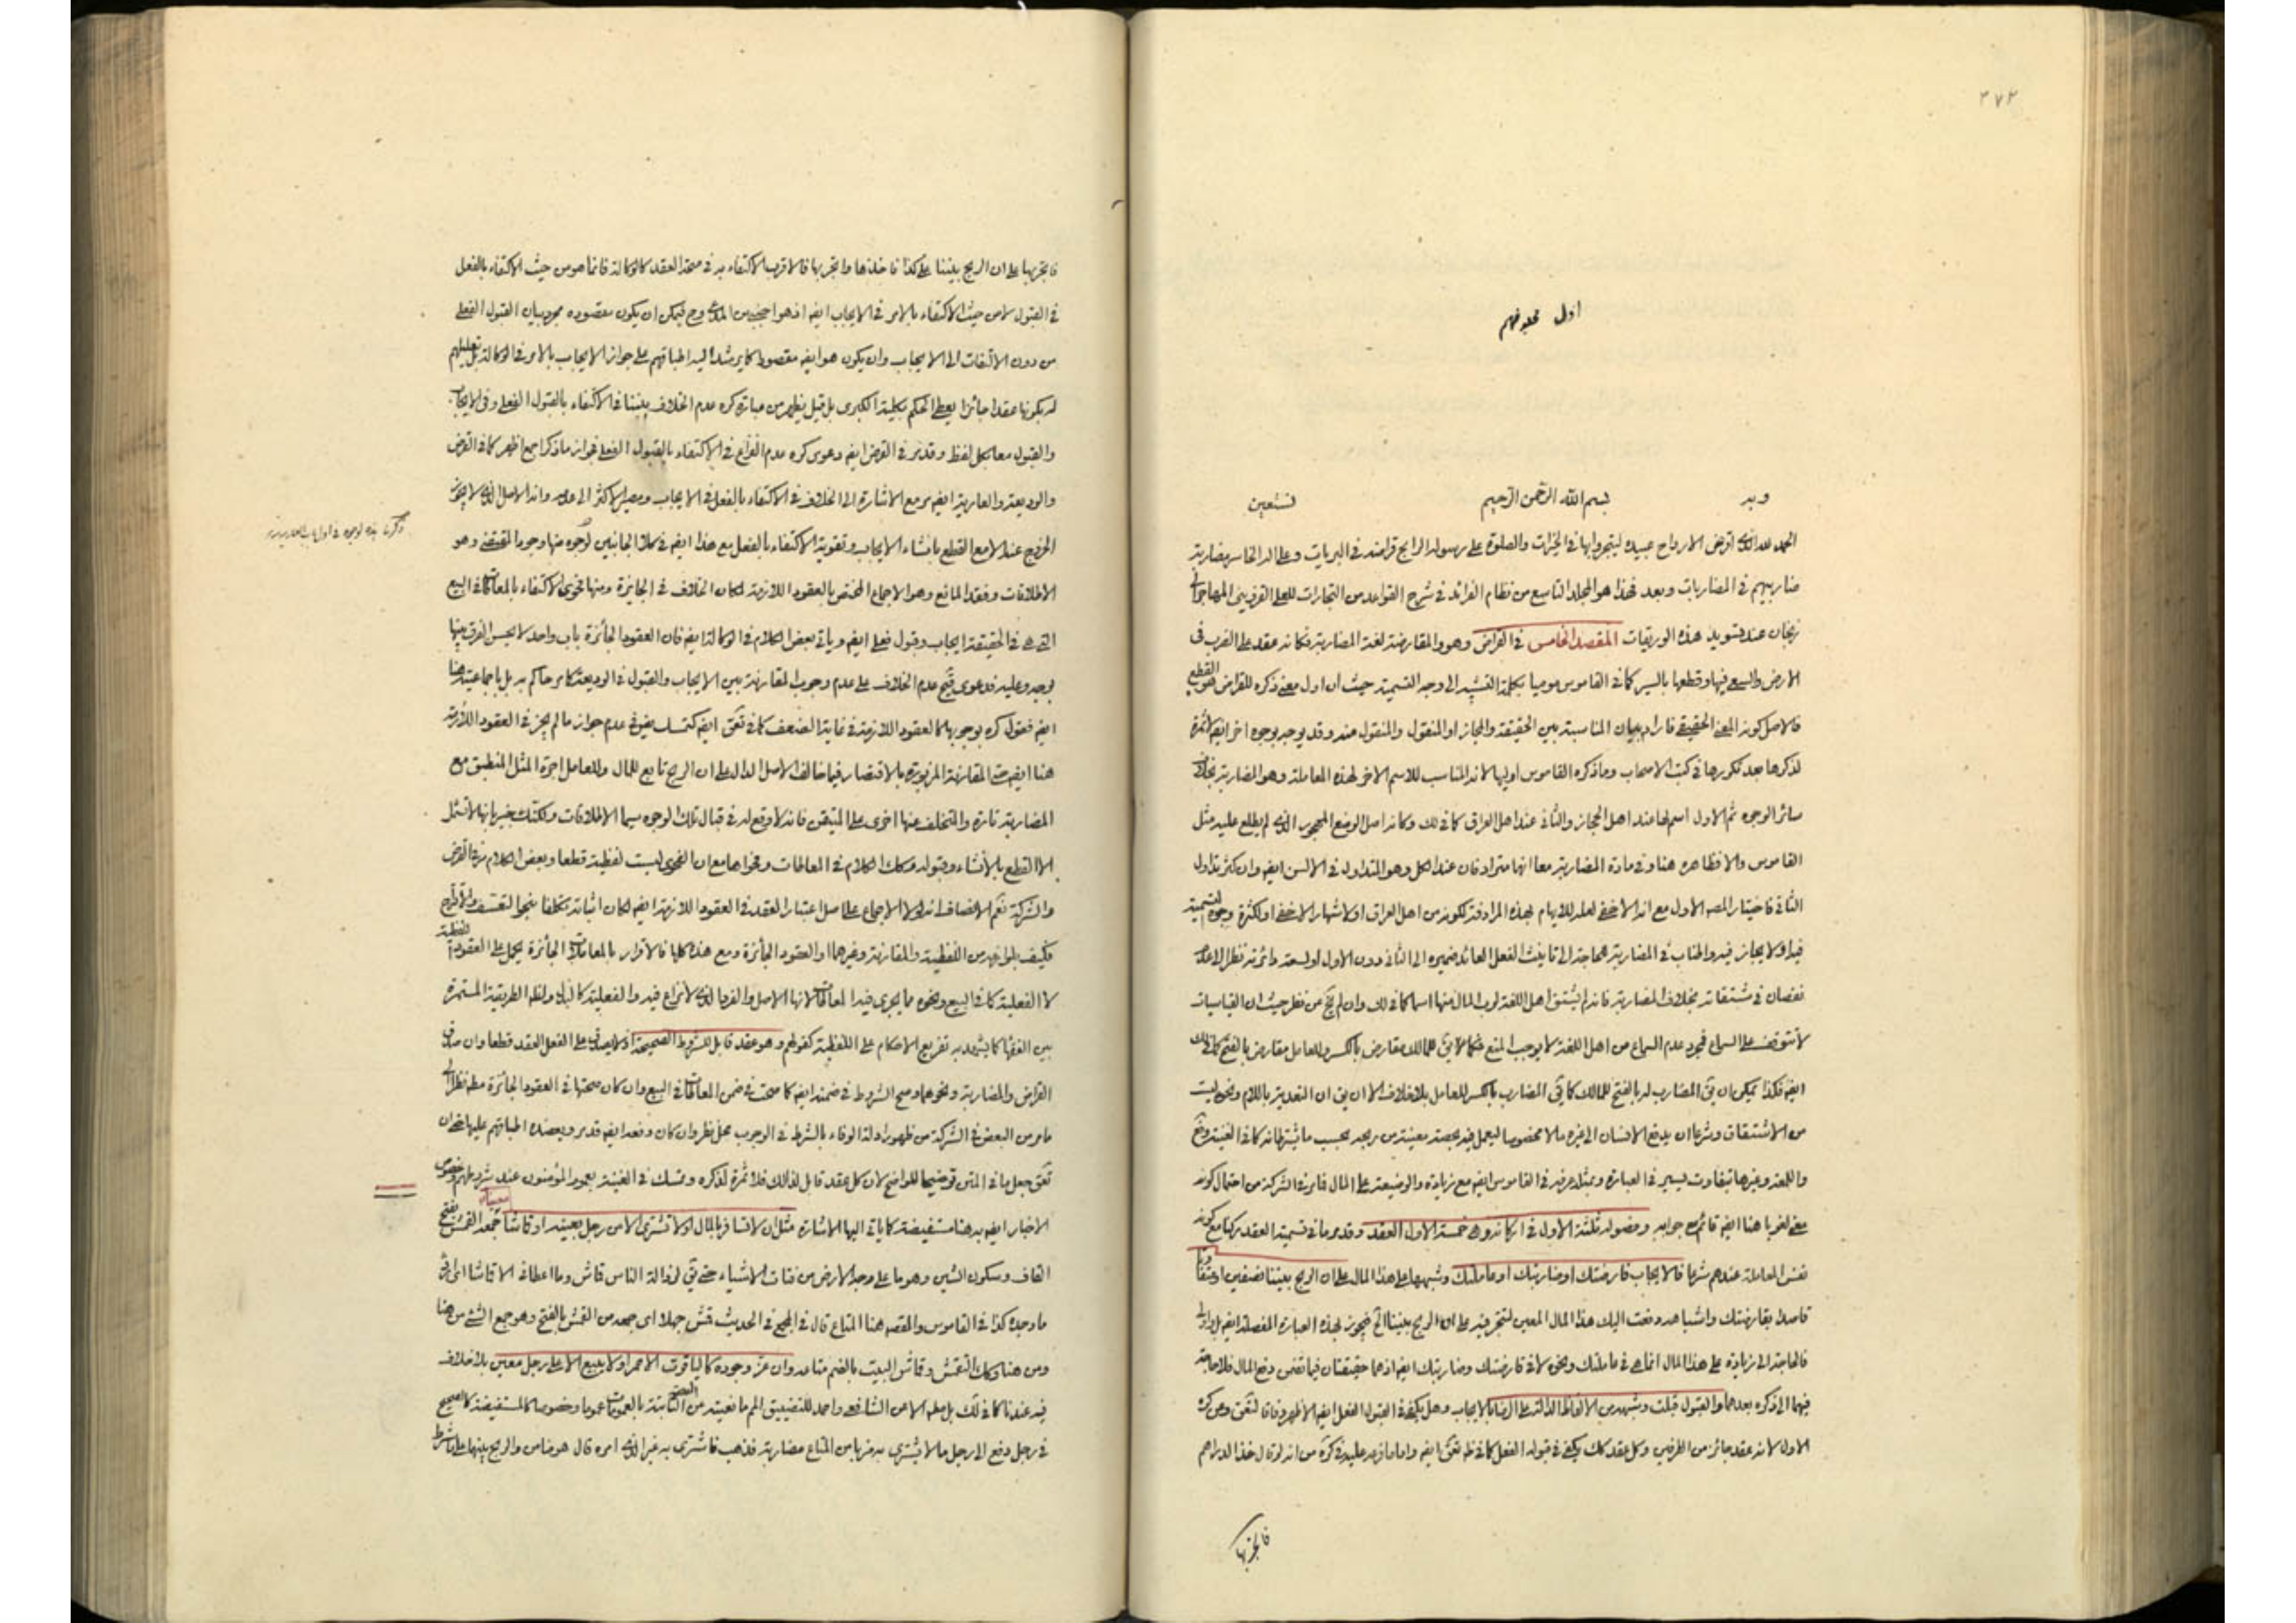 ۲۷۲
اول
وبه
بسم الله الرحمن الرحيم
نستعين
الحمد لله الذى اقرض الارواح عبيده ليتجروا بها فى الخيرات والصلوة على رسوله الرابح قراضه فى البريات وعلى اله الخاسر مضاربة
مضاربيهم فى المضاربات وبعد فهذا هو المجلد التاسع من نظام الفرائد فى شرح القواعد من التجارات للعلى القزوينى المهاجر الى
زنجان عند تسويد هذه الوريقات المقصد الخامس فى القراض وهو والمقارضة لغة المضاربة فكانه عقد على الضرب فى
الارض والسعى فيها وقطعها بالسير كما فى القاموس موميا بكلمة التشبيه الى وجه التسمية حيث ان اول معنى ذكره للقراض هو القطع
فالاصل كونه المعنى الحقيقى فاراد بيان المناسبة بين الحقيقة والمجاز او المنقول والمنقول عنه وقد يوجه بوجوه اخر ايض لا ثمرة
لذكرها بعد تكررها فى كتب الاصحاب وما ذكره القاموس اوليها لانه المناسب للاسم الاخر لهذه المعاملة وهو المضاربة بخلاف
سائر الوجوه ثم الاول اسم لها عند اهل الحجاز والثانى عند اهل العراق كما فى لك وكانه اصل الوضع المهجور الذى لم يطلع عليه مثل
القاموس والا فظاهره هنا وفى مادة المضاربة معا انهما مترادفان عند الكل وهو المتداول فى الالسن ايض وان كثر تداول
الثانى فاختيار المصه الاول مع انه الاخفى لعله للايهام لهذه المرادفة لكونه من اهل العراق او لاشهار الاخفى او لكثرة وجوه التسمية
نقصان فى مشتقاته بخلاف المضاربة فانه لم يشتق اهل اللغة لرب المال منها اسما كما فى لك وان لم يخ من نظر حيث ان القياسيات
لا تتوقف على السماع فمجرد عدم السماع من اهل اللغة لا يوجب المنع فكما يق للمالك مقارض بالكسر وللعامل مقارض بالفتح كما فى لك
ايض فكذا يمكن ان يق المضارب له بالفتح للمالك كما يق المضارب بالكسر للعامل بلا خلاف الا ان يق ان التعدية باللام ونحوه ليست
من الاشتقاق وشرعا ان يدفع الانسان الى غيره مالا مخصوصا ليعمل فيه بحصة معينة من ربحه بحسب ما يشترطانه كما فى الغنية
واللمعة وغيرها بتفاوت يسير فى العبارة وبمثله عرفه فى القاموس ايض مع زيادة والوضيعة على المال فما مر فى الشركة من احتمال كونه
معنى لغويا هنا ايض قائم وفصوله ثلثة الاول فى اركانه وهى خمسة الاول العقد وقد مر ما فى تسمية العقد ركنا مع كونه
نفس المعاملة عندهم شرعا فالايجاب قارضتك او ضاربتك او عاملتك وشبهها على هذا المال على ان الربح بيننا نصفين او متفاوتا
قاصدا بقارضتك واشباهه دفعت اليك هذا المال المعين لتتجر فيه على ان الربح بيننا الخ فيجوز بهذه العبارة المفصلة ايض
فالحاجة الى زيادة على هذا المال انما هى فى عاملتك ونحوه لا فى قارضتك وضاربتك ايض اذ هما حقيقتان فيما تضمن دفع المال فلا حاجة
فيهما الى ذكره بعدهما والقبول قبلت وشبهه من الالفاظ الدالة على الرضا بالايجاب وهل يكفى فى القبول الفعل ايض الاظهر وفاقا
الاول لانه عقد جائز من الطرفين وكل عقد كك يكفى فى قبوله الفعل
فاتجر بها
فاتجر بها على ان الربح بيننا على كذا فاخذها واتجر بها فالاقرب الاكتفاء به فى صحة العقد كالوكالة فانما هو من حيث الاكتفاء بالفعل
فى القبول لا من حيث الاكتفاء بالامر فى الايجاب ايض اذ هو اجنبى من المدعى وح فيمكن ان يكون مقصوده مجرد بيان القبول الفعلى
من دون الالتفات الى الايجاب وان يكون هو ايض مقصودا كما يرشد اليه اطباقهم على جواز الايجاب بالامر فى الوكالة بل تعليلهم
له بكونها عقدا جائزا يعطى الحكم بكلية الكبرى بل قيل يظهر من عبارة كره عدم الخلاف بيننا فى الاكتفاء بالقبول الفعلى وفى الايجاب
والقبول معا بكل لفظ وقد مر فى القرض ايض دعوى كره عدم النزاع فى الاكتفاء بالقبول الفعلى فجواز ما ذكرا مع اظهر كما فى القرض
والوديعة والعارية ايض مر مع الاشارة الى الخلاف فى الاكتفاء بالفعل فى الايجاب ومصير الاكثر الى عدمه وانه الاصل الذى لا يجوز
الخروج عنه الا مع القطع بانشاء الايجاب وتقوية الاكتفاء بالفعل مع هذا ايض فى كلا الجانبين لوجوه منها وجود المقتضى وهو
الاطلاقات وفقد المانع وهو الاجماع المختص بالعقود اللازمة لمكان الخلاف فى الجائزة ومنها فحوى الاكتفاء بالمعاطاة فى البيع
التى هى فى الحقيقة ايجاب وقبول فعلى ايض وياتى بعض الكلام فى الوكالة ايض فان العقود الجائزة باب واحد لا يحسن الفرق بينها
بوجه وعليه فدعوى عدم الخلاف على عدم وجوب المقارنة بين الايجاب والقبول فى الوديعة كما مر حاكم به بل باجماعيته هنا
ايض فقول كره بوجوبها كالعقود اللازمة فى غاية الضعف
هنا ايض حتى المقارنة المزبورة بالاقتصار فيما خالف الاصل الدال على ان الربح تابع للمال وللعامل اجرة المثل المنطبق مع
المضاربة تارة والمتخلف عنها اخرى على المتيقن فانه لا وقع له فى قبال تلك الوجوه سيما الاطلاقات
الا القطع بالانشاء وقبوله وكك الكلام فى المعاطاة وفحواها مع ان الفحوى ليست لفظية قطعا وبعض الكلام مر فى القرض
والشركة نعم الانصاف انه لولا الاجماع على اصل اعتبار العقد فى العقود اللازمة ايض لكان اثباته
فكيف بلوازمه من اللفظية والمقارنة وغيرهما او العقود الجائزة ومع هذا كله فالاقرار بالمعاملة الجائزة يحمل على العقود اللفظية
لا الفعلية كما فى البيع ونحوه مما يجرى فيه المعاطاة لانها الاصل والفرد الذى لا نزاع فيه والفعلية كالبدل ولعله الطريقة المستمرة
بين الفقهاء كما يشهد به تفريع الاحكام على اللفظية كقولهم وهو عقد قابل للشروط الصحيحة اذ لا يصدق على الفعل العقد قطعا وان صدق
القراض والمضاربة ونحوهما وصح الشروط فى ضمنه ايض كما صحت فى ضمن المعاطاة فى البيع وان كان صحتها فى العقود الجائزة
ما مر من البعض فى الشركة من ظهور ادلة الوفاء بالشرط فى الوجوب محل نظر وان كان دفعه ايض قد مر ويعضده اطباقهم عليها
جعل ما فى المتن توضيحا للواضح لان كل عقد قابل لذلك فلا ثمرة لذكره وتمسك فى الغنية بعموم المؤمنون عند شروطهم
الاخبار ايض به هنا مستفيضة كما ياتى اليها الاشارة مثل ان لا تسافر بالمال او لا تشترى الا من رجل بعينه او قماشا معينا جمعه القمش بفتح
القاف وسكون الشين وهو ما على وجه الارض من فتات الاشياء حتى يق لرذالة الناس قماش وما اعطانى الا قماشا اى اردى
ما وجده كذا فى القاموس والمقصود هنا المتاع قال فى المجمع فى الحديث قمش جهلا اى جمعه من القمش بالفتح وهو جمع الشئ من هنا
ومن هنا وكك التقمش وقماش البيت بالضم متاعه وان عز وجوده كالياقوت الاحمر او لا يبيع الا على رجل معين بلا خلاف
فيه عندنا كما فى لك بل مطلقا الا من الشافعى واحمد للتضييق المانعين من الصحة الثابتة بالعمومات عموما وخصوصا كالمستفيضة كالصحيح
فى رجل دفع الى رجل مالا يشترى به ضربا من المتاع مضاربة فذهب فاشترى به غير الذى امره قال هو ضامن والربح بينهما على ما شرط